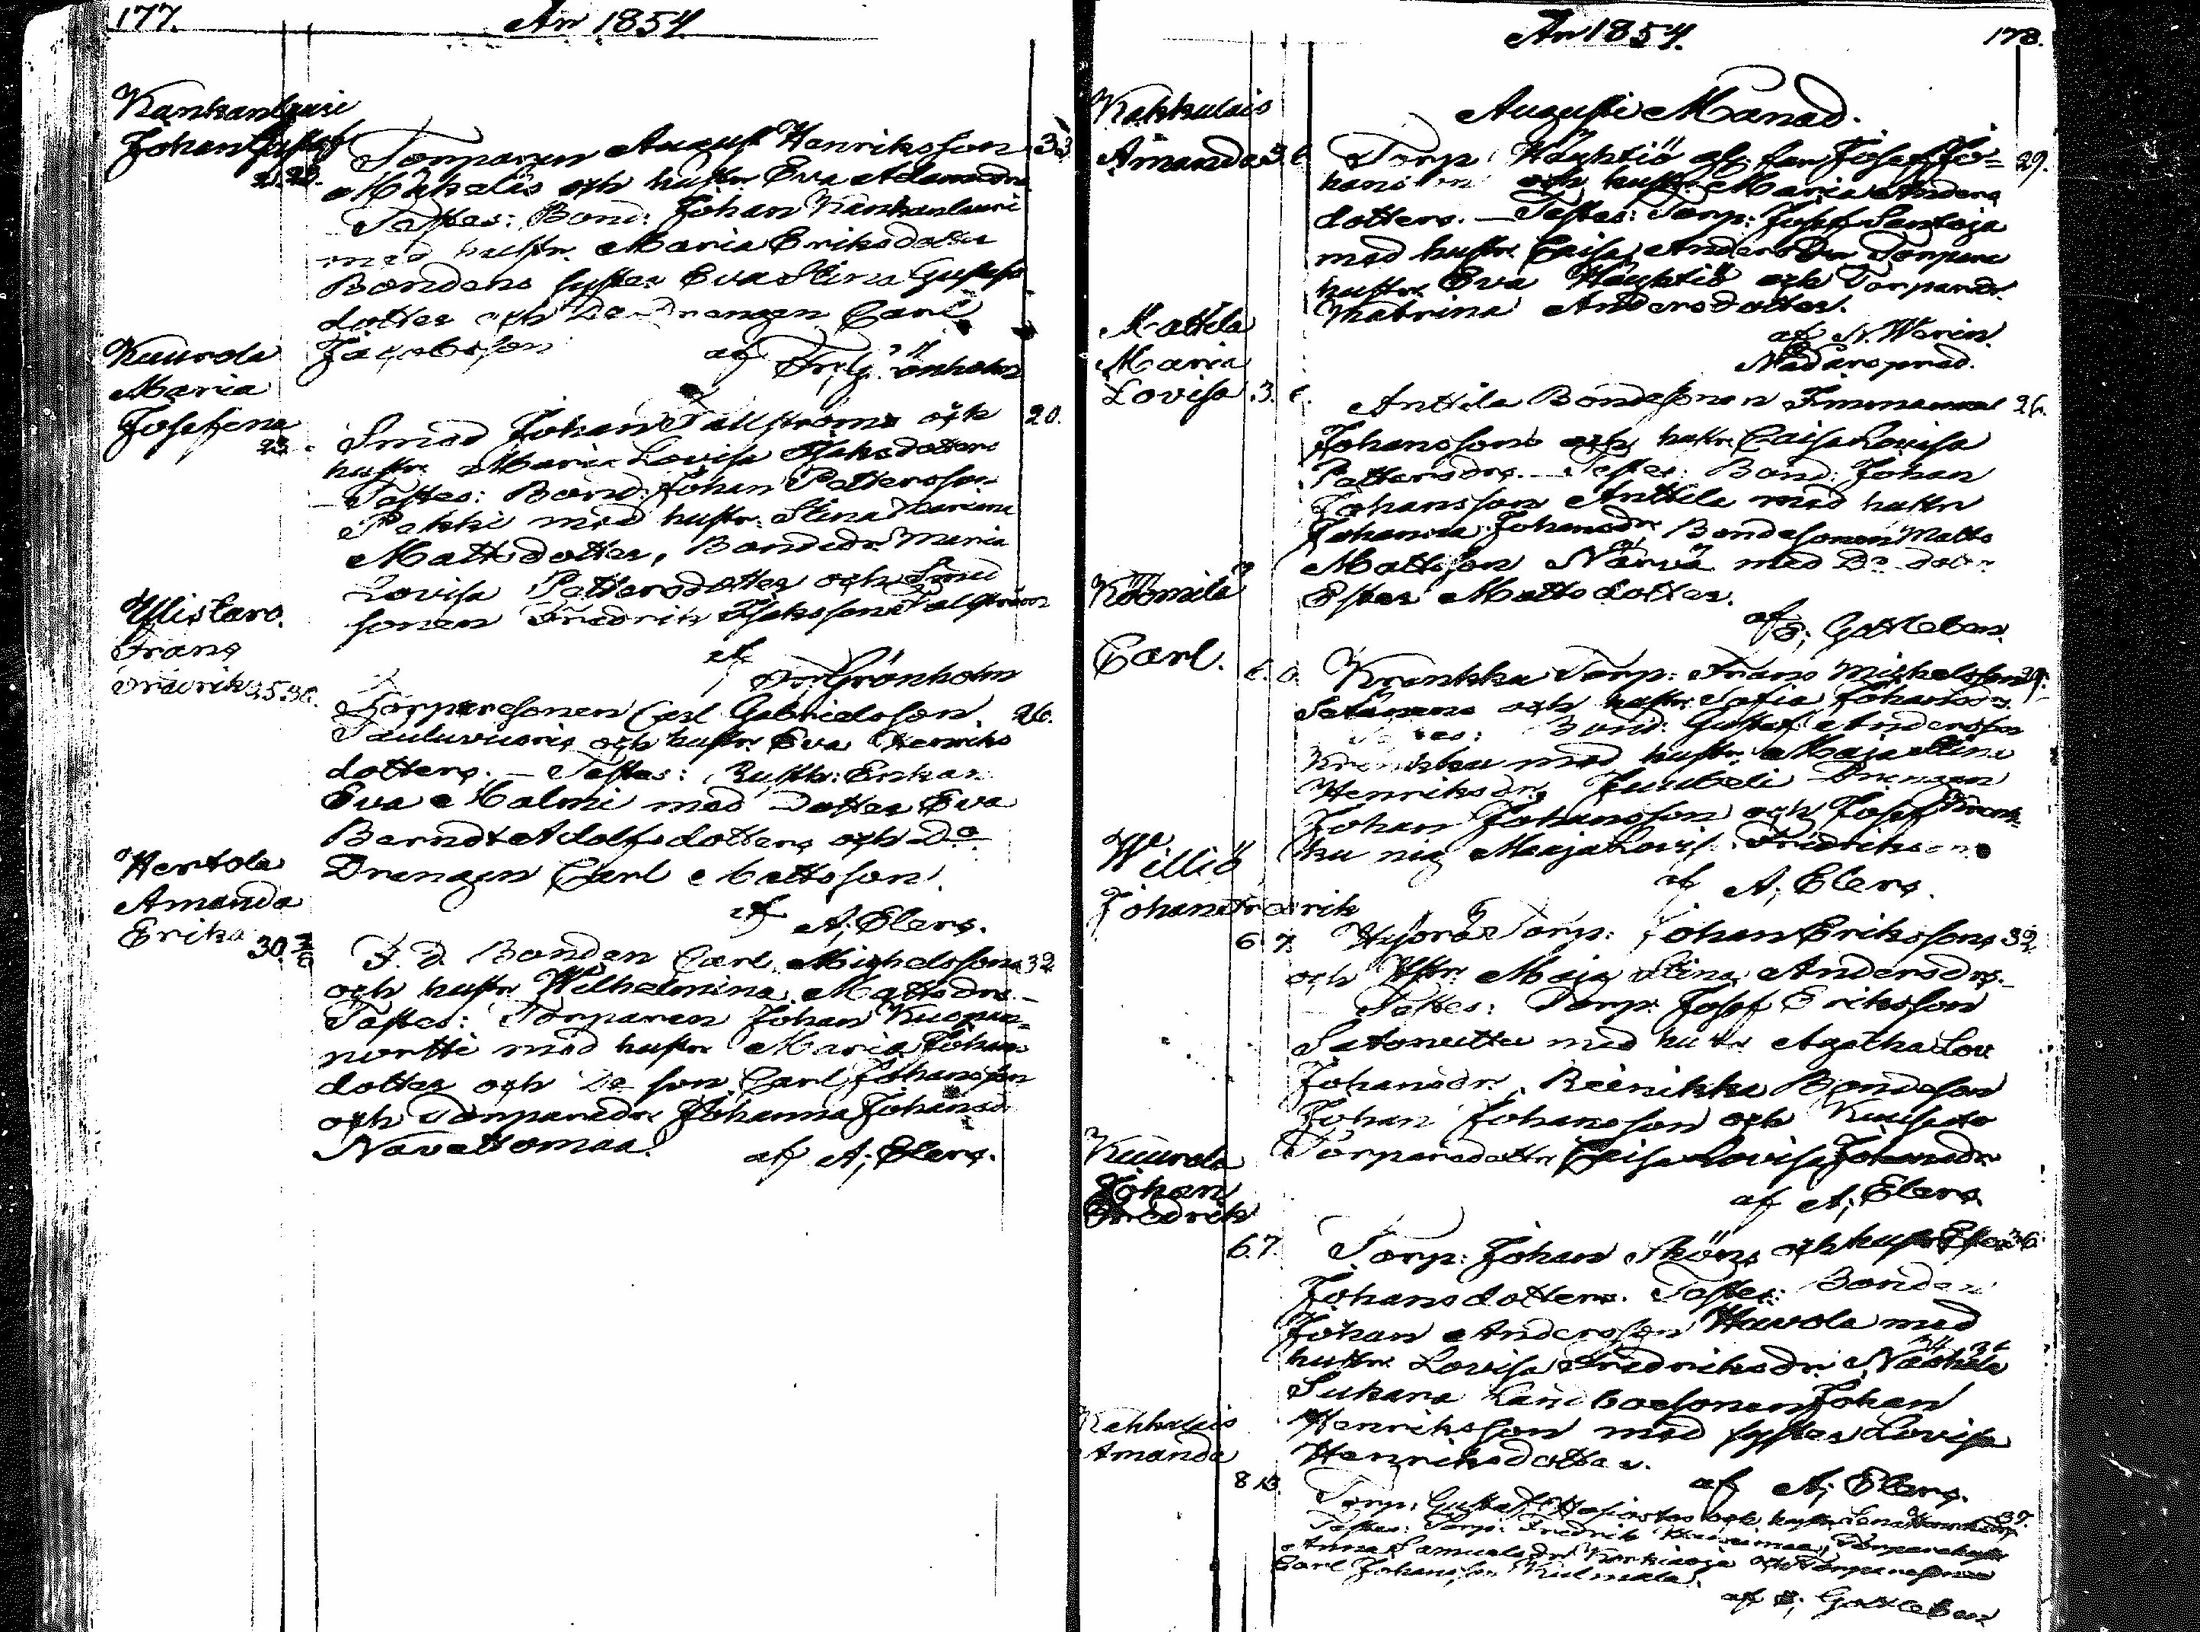 177. An 1854.
Kankanlauri
Johan Gustaf
Torparen August Henriksson 33.
Mickalis och hustr. Eva Adamsdr
Testes: Bond: Johan Kankanlauri
med hustr. Maria Eriksdotter
Bondens syster Eva Stina Gustafs
dotter och Do Drengen Carl
Jacobsson af Fr. Grönholm
Kuurola
Maria
Josefina
23.
Smed Johan Tallströms och 20.
hustr. Maria Lovisa Isaksdotters
Testes: Bond: Johan Pettersson
Pekki med hustr. Stina Mariana
Mattsdotter, Bondedr. Maria
Lovisa Pettersdotter och Smed
sonen Fredrik Isaksson Talström
af
Fr. Grönholm
Ylistaro.
Frans
Fredrik 25.30.
Torparesonen Carl Gabrielsson 26.
Tauluvuori och hustr. Eva Henriks
dotters. – Testes: Rusth: Enkan
Eva Malmi med Dotter Eva
Berndt Adolfsdotters och Do
Drengen Carl Mattsson.
af A; Elers.
Hertola
Amanda
Erika 30.
F. D. Bonden Carl Michelssons 32
och hustr Wilhelmina Mattsdrs. –
Testes: Torparen Johan Kuopan-
portti med hustr Maria Johans
dotter och Do son Carl Johansson
och Torparedr. Johanna Johansdr
Navettomaa. af A; Elers.
An 1854. 178.
Augusti Månad.
Kakkulais
Amanda
Torp: Höyhtiö af far Josef Jo- 29.
hansson och hustr Maria Anders
dotters. – Testes: Torp: Josef Santoja
med hustr Caisa Andersdr Torpare
hustr. Eva Höyhtiö och Torparedr.
Kathrina Andersdotter.
af N. Warén.
Nådårspred.
Mattila
Maria
Lovisa .3.
Anttila Bondesonen Immanuel 26.
Johanssons och hustr. Caisa Lovisa
Pettersdrs. – Testes: Bond: Johan
Johansson Anttila med hustr
Johanna Johansdr Bondesonen Matts
Mattsson Närvä med Do dotr
Ester Mattsdotter.
af E; Gottleben.
Köömilä
Carl.
Krankka Torp: Frans Michelsson 29.
Satanens och hustr Sofia Johansdrs.
Testes: Bond: Gustaf Andersson
Krankka med hustr. Maja Stina
Henriksdr, Juubeli Drengen
Johan Johansson och Josef Krank-
ku pig Maaja Lovis. Fridriks
af A; Elers.
Williö
Johan Fredrik
6. 7. Torp: Johan Erikssons 32.
och Hstr. Maja Stina Andersdrs. –
Testes: Torp: Josef Eriksson
Satonutta med hustr Agatha Lov
Johansdr., Reinikka Bondeson
Johan Johansson och Kuuseto
Torparedottr. Caisa Lovisa Johansdr
af A; Elers.
Kuurola
Johan
Fredrik
6. 7. Torp: Johan Sköns och hustr Ester 36.
Johansdotters. Testes: Bonden
Johan Andersson Huvola med
hustr. Lovisa Fredriksdr.
Sukara Landboesonen Johan
Henriksson med syster Lovisa
Henriksdotter.
af A; Elers.
Kakkulais
Amanda
8 13. Torp: Gustaf och hustr Lena Henriksdrs 37.
Testes: Torp: Fredrik Torparehustr
Anna Samuelsdr Korkiaoja och Torparesonen
Carl Johansson Kulmala.
af E; Gottleben